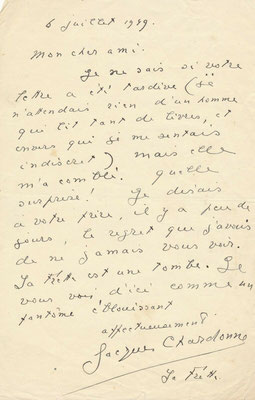 6 juillet 1959.
Mon cher ami.
Je ne sais si votre
lettre a été tardive (je
n'attendais rien d'un homme
qui lit tant de livres, et
envers qui je me sentais
indiscret) mais elle
m'a comblé. Quelle
surprise! Je disais
à votre père, il y a peu de
jours, le regret que j'avais
de ne jamais vous voir.
La Frette est une tombe. Je
vous vois d'ici comme un
fantôme éblouissant
affectueusement.
Jacques Chardonne
La Frette